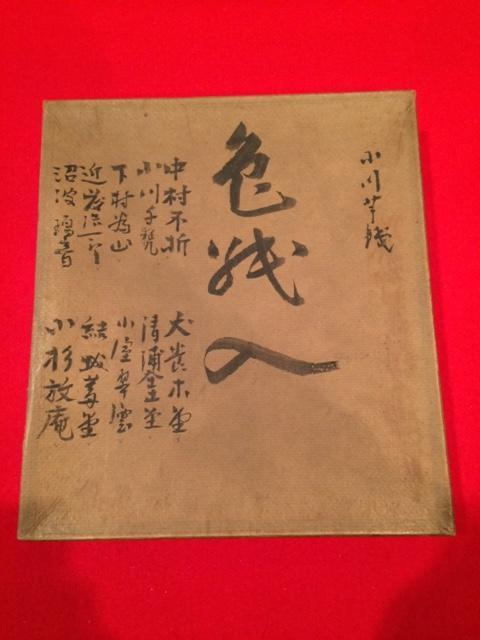 小川芋錢
色紙入
中村不折
小川千甕
下村為山
近藤浩一路
沼波瓊音
犬養木堂
清浦奎堂
小室翠雲
結城蓄堂
小杉放庵